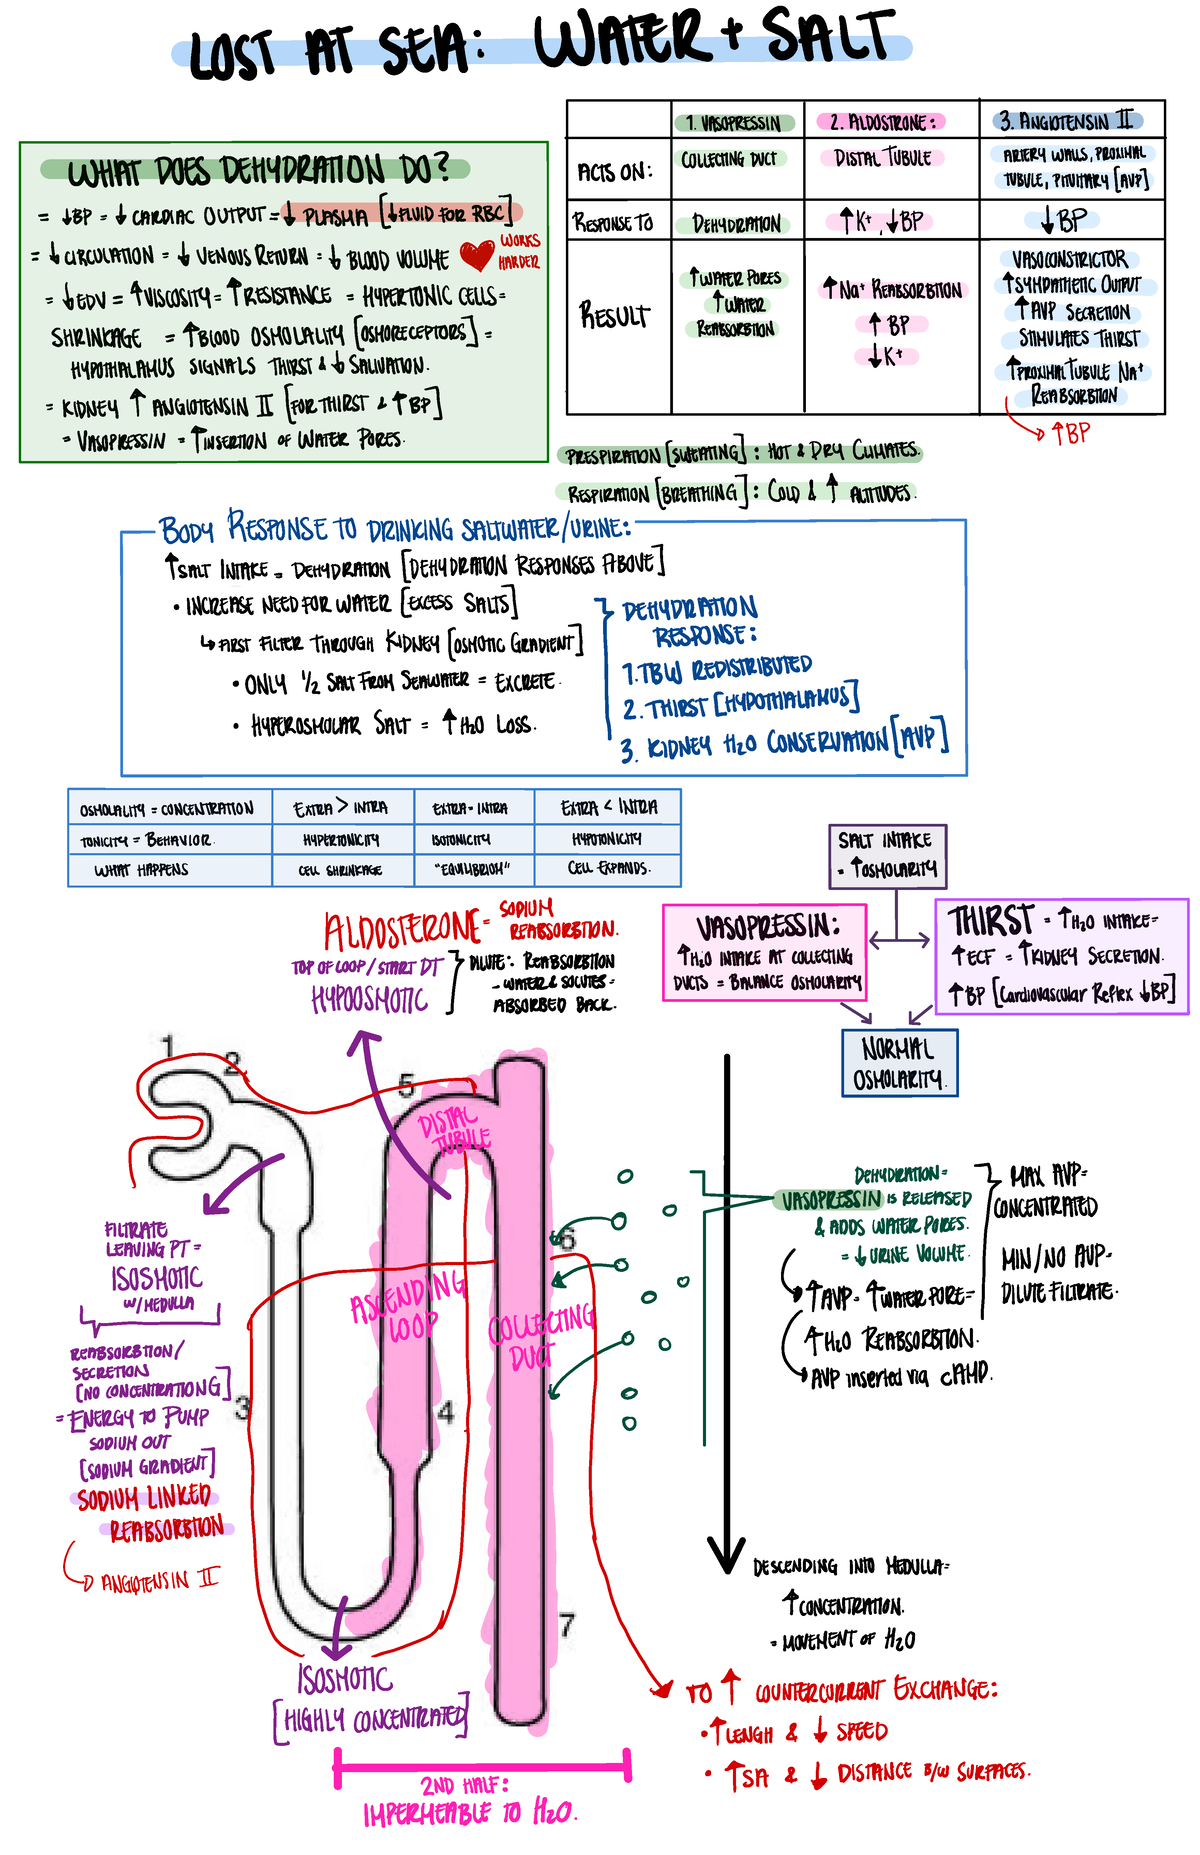 LOST AT SEA: WATER + SALT
WHAT DOES DEHYDRATION DO?
= ↓BP = ↓ CARDIAC OUTPUT = ↓ PLASMA [↓FLUID FOR RBC]
= ↓ CIRCULATION = ↓ VENOUS RETURN = ↓ BLOOD VOLUME
WORKS
HARDER
= ↓EDV = ↑VISCOSITY = ↑RESISTANCE = HYPERTONIC CELLS =
SHRINKAGE = ↑BLOOD OSMOLALITY [OSMORECEPTORS] =
HYPOTHALAMUS SIGNALS THIRST & ↓ SALIVATION.
= KIDNEY ↑ ANGIOTENSIN II [FOR THIRST & ↑BP]
= VASOPRESSIN = ↑INSERTION OF WATER PORES.
1. VASOPRESSIN
2. ALDOSTRONE:
3. ANGIOTENSIN II
ACTS ON:
COLLECTING DUCT
DISTAL TUBULE
ARTERY WALLS, PROXIMAL
TUBULE, PITUITARY [AVP]
RESPONSE TO
DEHYDRATION
↑K+, ↓BP
↓BP
RESULT
↑WATER PORES
↑WATER
REABSORBTION
↑Na+ REABSORBTION
↑ BP
↓K+
VASOCONSTRICTOR
↑SYMPATHETIC OUTPUT
↑AVP SECRETION
STIMULATES THIRST
↑PROXIMAL TUBULE Na+
REABSORBTION
↑BP
PRESPIRATION [SWEATING]: HOT & DRY CLIMATES.
RESPIRATION [BREATHING]: COLD & ↑ ALTITUDES.
BODY RESPONSE TO DRINKING SALTWATER/URINE:
↑SALT INTAKE = DEHYDRATION [DEHYDRATION RESPONSES ABOVE]
• INCREASE NEED FOR WATER [EXCESS SALTS]
↳ FIRST FILTER THROUGH KIDNEY [OSMOTIC GRADIENT]
• ONLY 1/2 SALT FROM SEAWATER = EXCRETE.
• HYPEROSMOLAR SALT = ↑H2O LOSS.
DEHYDRATION
RESPONSE:
1. TBW REDISTRIBUTED
2. THIRST [HYPOTHALAMUS]
3. KIDNEY H2O CONSERVATION [AVP]
OSMOLALITY = CONCENTRATION
EXTRA > INTRA
EXTRA = INTRA
EXTRA < INTRA
TONICITY = BEHAVIOR.
HYPERTONICITY
ISOTONICITY
HYPOTONICITY
WHAT HAPPENS
CELL SHRINKAGE
"EQUILIBRIUM"
CELL EXPANDS.
SALT INTAKE
= ↑OSMOLARITY
VASOPRESSIN:
↑H2O INTAKE AT COLLECTING
DUCTS = BALANCE OSMOLARITY
THIRST = ↑H2O INTAKE =
↑ECF = ↑KIDNEY SECRETION.
↑BP [Cardiovascular Reflex ↓BP]
NORMAL
OSMOLARITY.
ALDOSTERONE = SODIUM
REABSORBTION.
TOP OF LOOP/START DT
HYPOOSMOTIC
DILUTE: REABSORBTION
- WATER & SOLUTES =
ABSORBED BACK.
1
2
5
DISTAL
TUBULE
FILTRATE
LEAVING PT =
ISOSMOTIC
W/MEDULLA
REABSORBTION/
SECRETION
[NO CONCENTRATIONG]
= ENERGY TO PUMP
SODIUM OUT
[SODIUM GRADIENT]
SODIUM LINKED
REABSORBTION
ANGIOTENSIN II
3
ASCENDING
LOOP
4
COLLECTING
DUCT
6
7
ISOSMOTIC
[HIGHLY CONCENTRATED]
2ND HALF:
IMPERMEABLE TO H2O.
DEHYDRATION =
VASOPRESSIN IS RELEASED
& ADDS WATER PORES.
= ↓ URINE VOLUME.
↑AVP = ↑WATER PORE =
↑H2O REABSORBTION.
AVP inserted via cAMP.
MAX AVP =
CONCENTRATED
MIN/NO AVP =
DILUTE FILTRATE.
DESCENDING INTO MEDULLA =
↑CONCENTRATION.
= MOVEMENT OF H2O
TO ↑ COUNTERCURRENT EXCHANGE:
• ↑LENGH & ↓ SPEED
• ↑SA & ↓ DISTANCE B/W SURFACES.